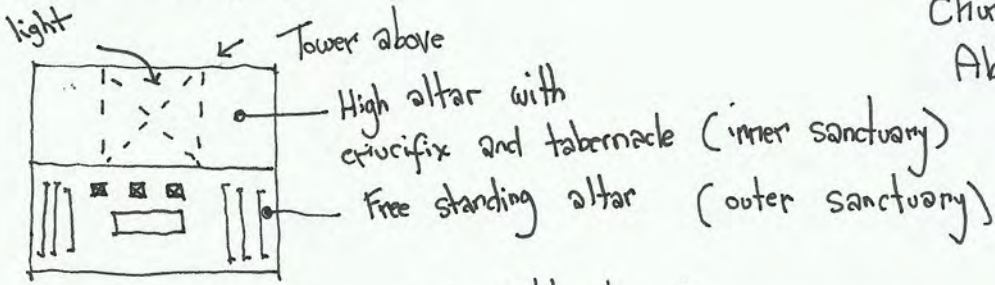 light
Tower above
High altar with
crucifix and tabernacle (inner sanctuary)
Free standing altar (outer sanctuary)